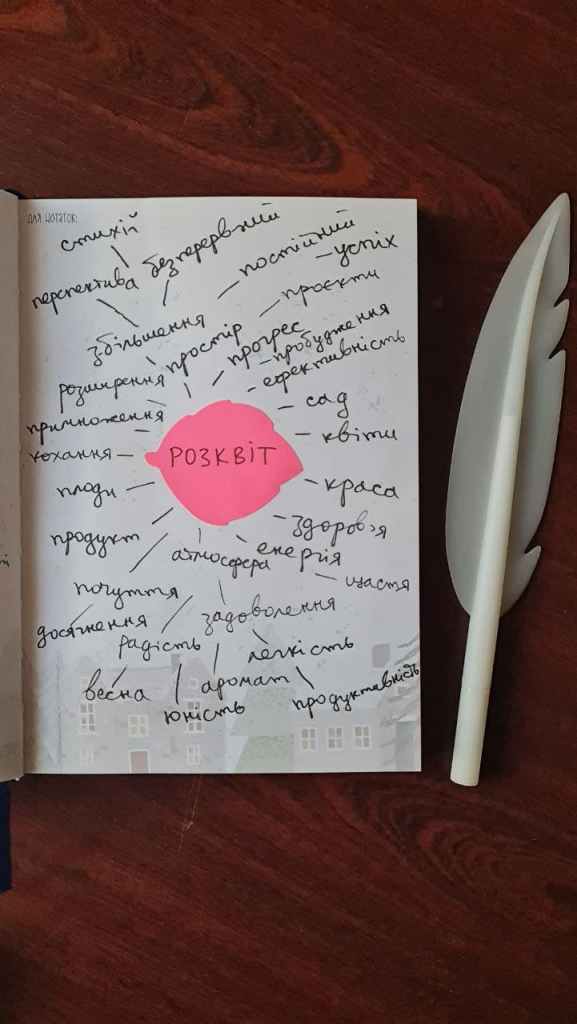 ДЛЯ НОТАТОК:
стихій
безперервний
постійний
успіх
перспектива
проєкти
збільшення
простір
прогрес
пробудження
ефективність
розширення
примноження
сад
квіти
кохання
РОЗКВІТ
плоди
краса
продукт
здоров'я
атмосфера
енергія
щастя
почуття
задоволення
досягнення
радість
легкість
весна
аромат
юність
продуктивність